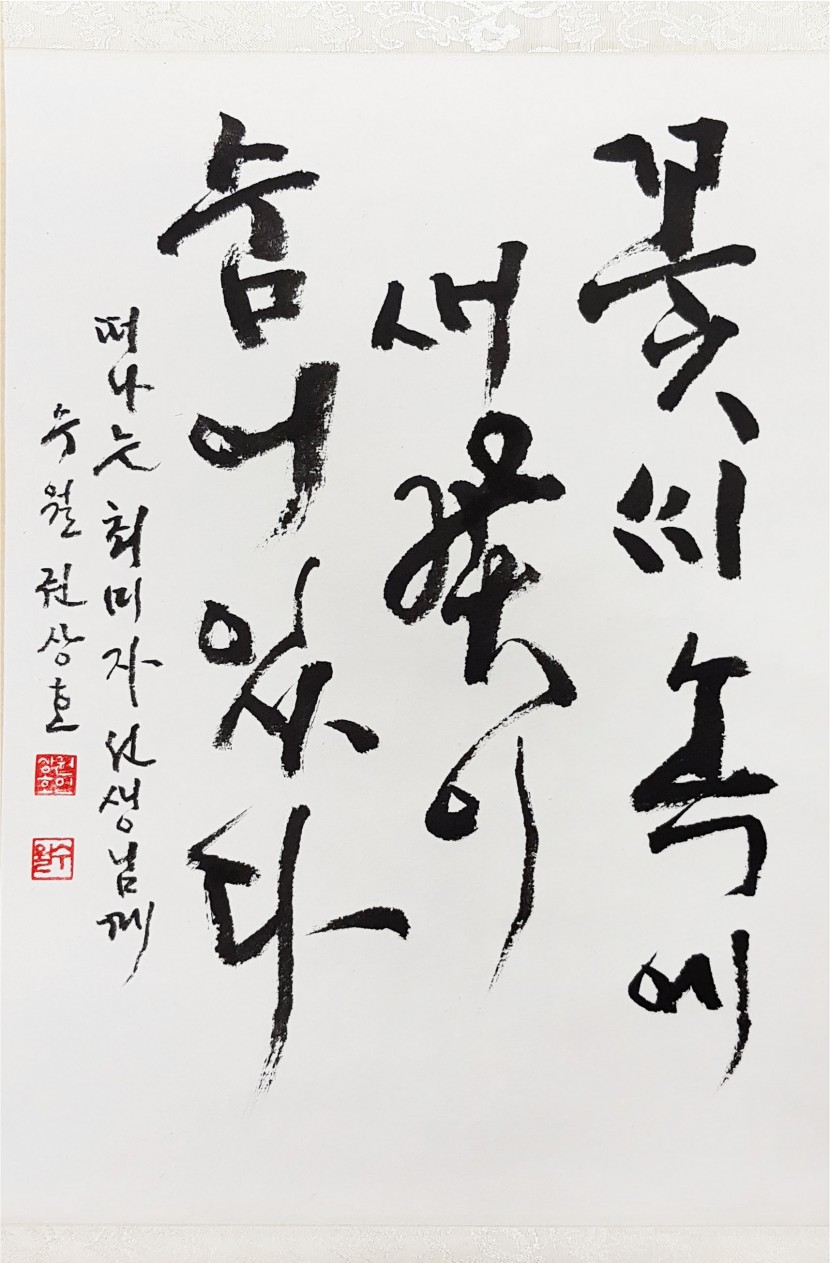 꽃씨 속에
새 이
숨어 있다
떠나는 최미자 선생님께
수월 권상호
권인상호
수월